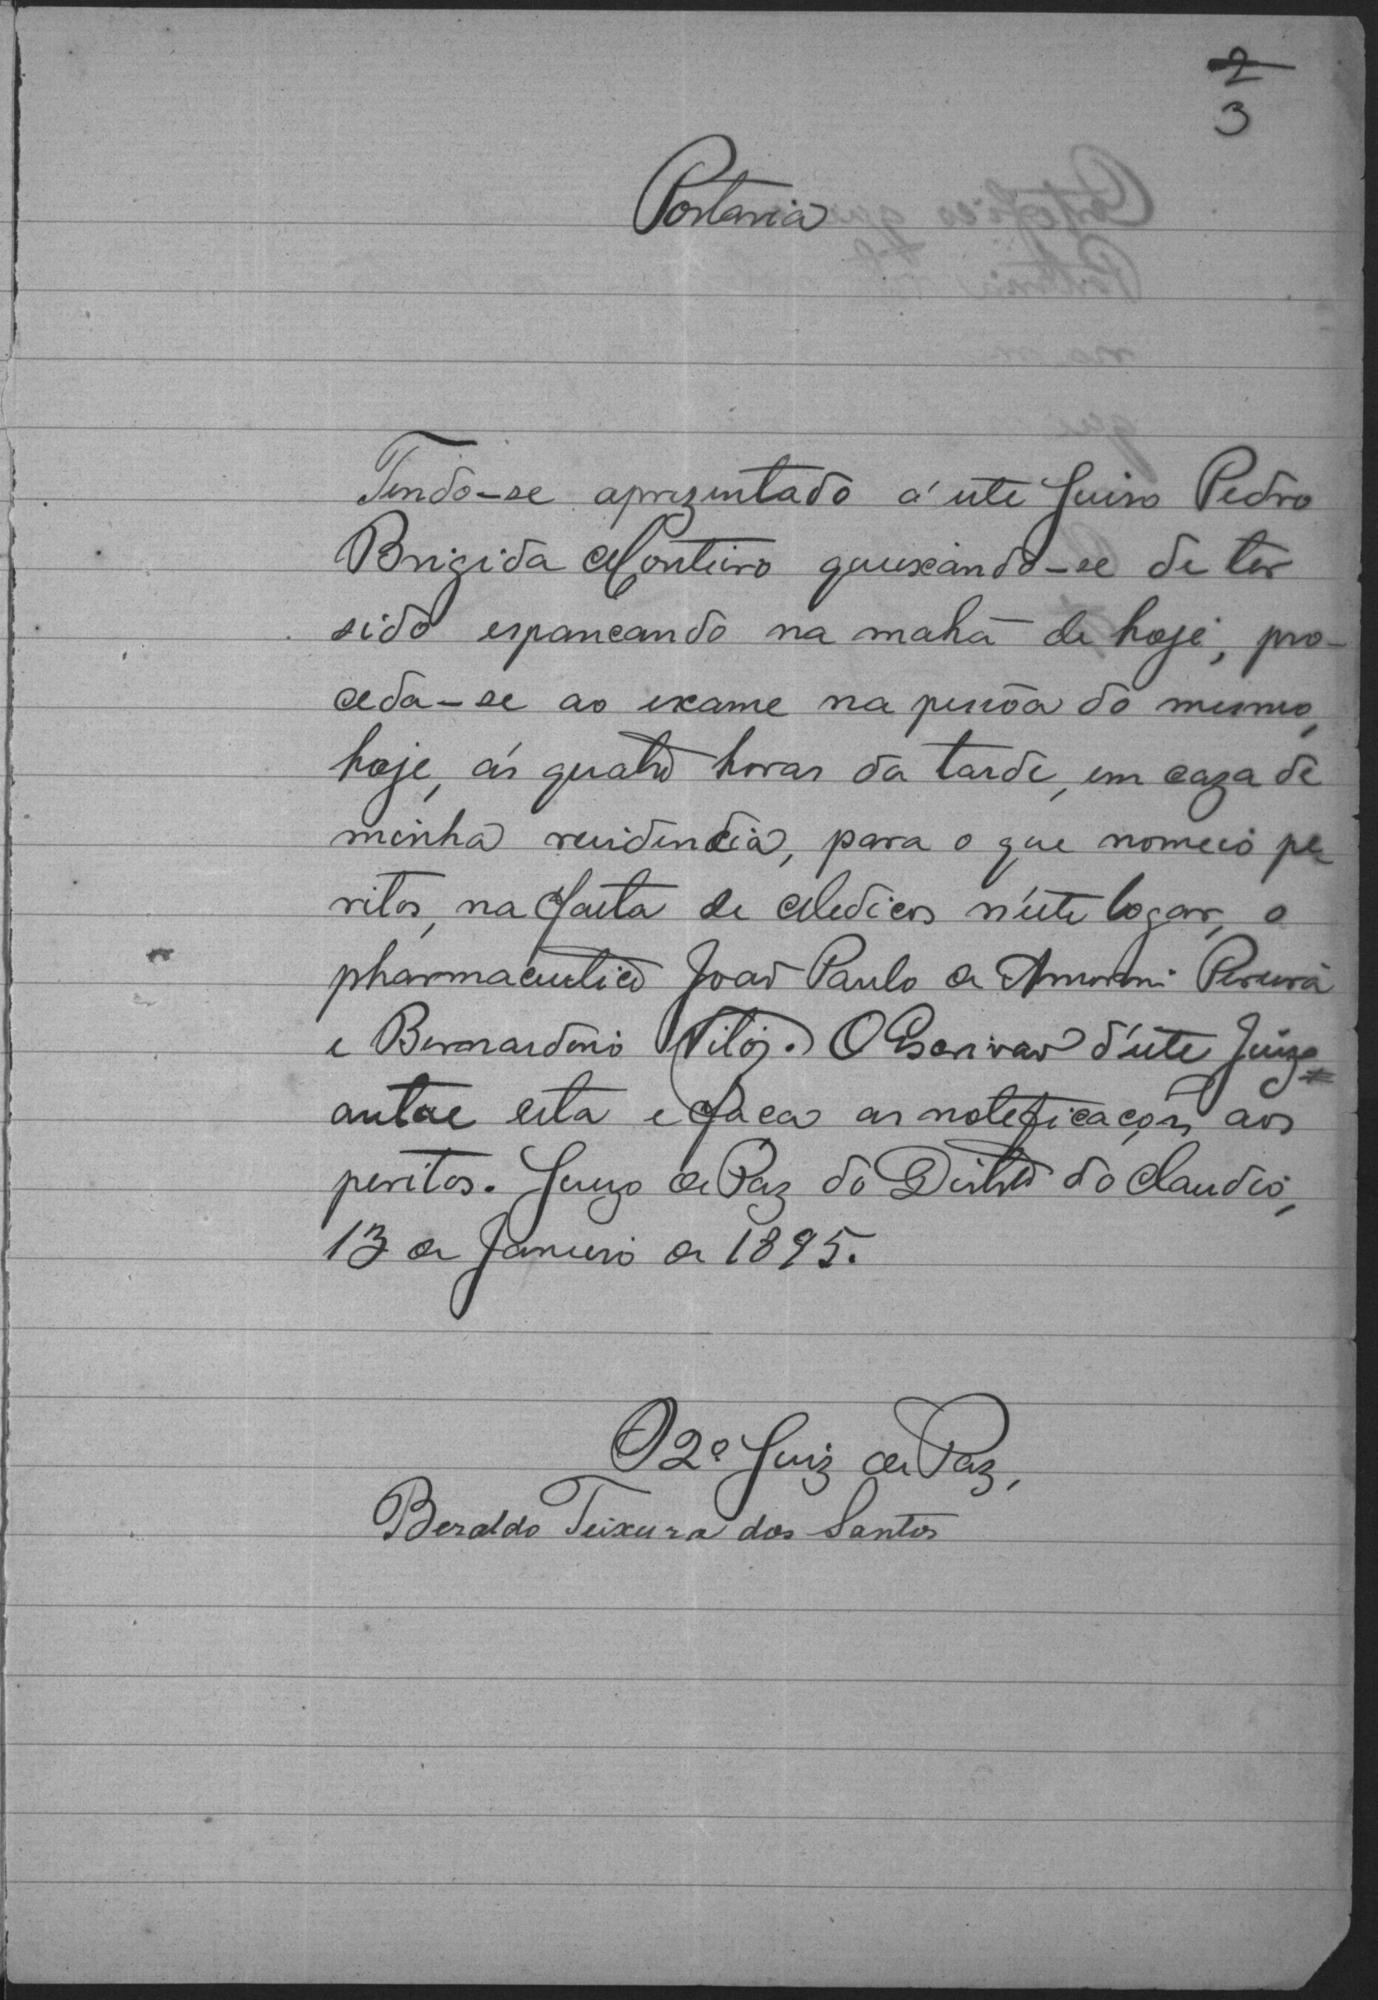 2
3
Portaria
Tendo-se aprezentado á éste Juiso Pedro
Brigida Monteiro queixando-se de ter
sido espancando na mahã de hoje, pro-
ceda-se ao exame na pessôa do mesmo,
hoje, ás quatro horas da tarde, em caza de
minha residencia, para o que nomeio pe
ritos, na falta de Medicos n'éste logar, o
pharmaceutico João Paulo de Amorim Pereira
e Bernardino O Escrivão d'éste Juizo
autoe esta e faca as noteficaçoẽs aos
peritos. Juizo de Paz do Districto do Claudio,
13 de Janeiro de 1895.
O 2º Juiz de Paz,
Beraldo Teixeira dos Santos